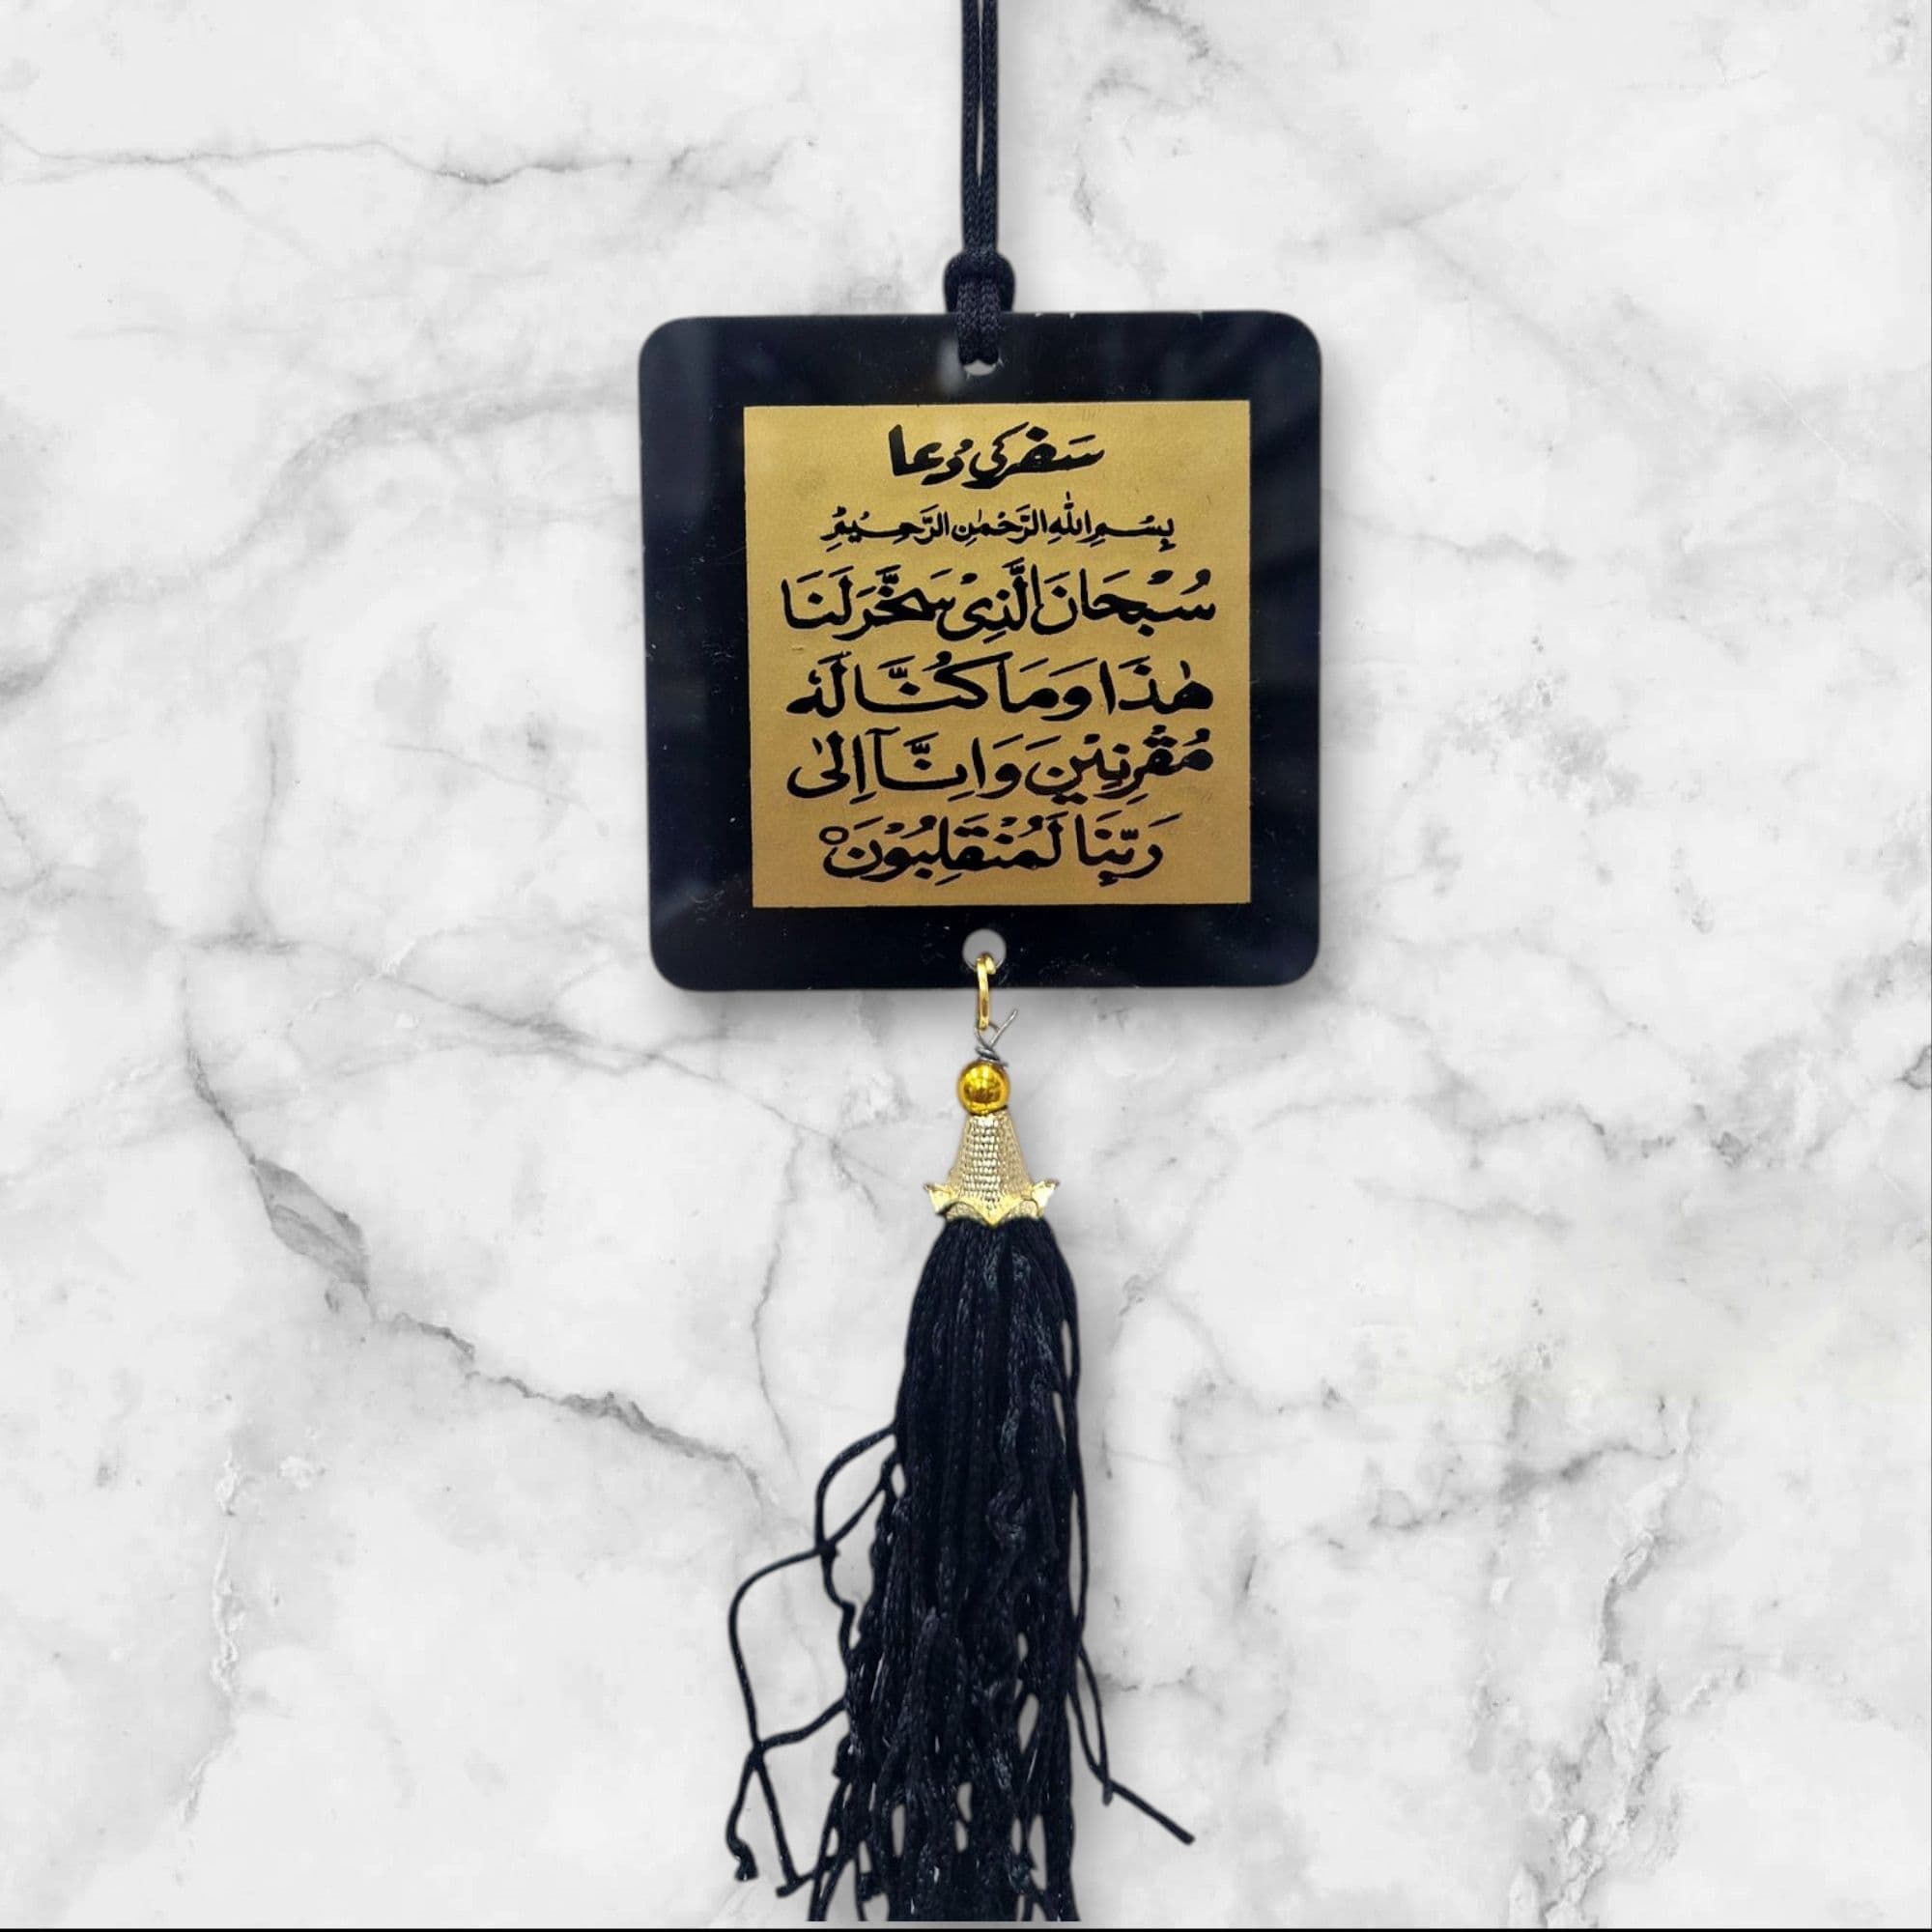 سَفر کی دُعا
بِسْمِ اللهِ الرَّحْمٰنِ الرَّحِيْمِ
سُبْحَانَ الَّذِىْ سَخَّرَ لَنَا
هٰذَا وَمَا كُنَّا لَهٗ
مُقْرِنِيْنَ وَاِنَّآ اِلٰى
رَبِّنَا لَمُنْقَلِبُوْنَ○